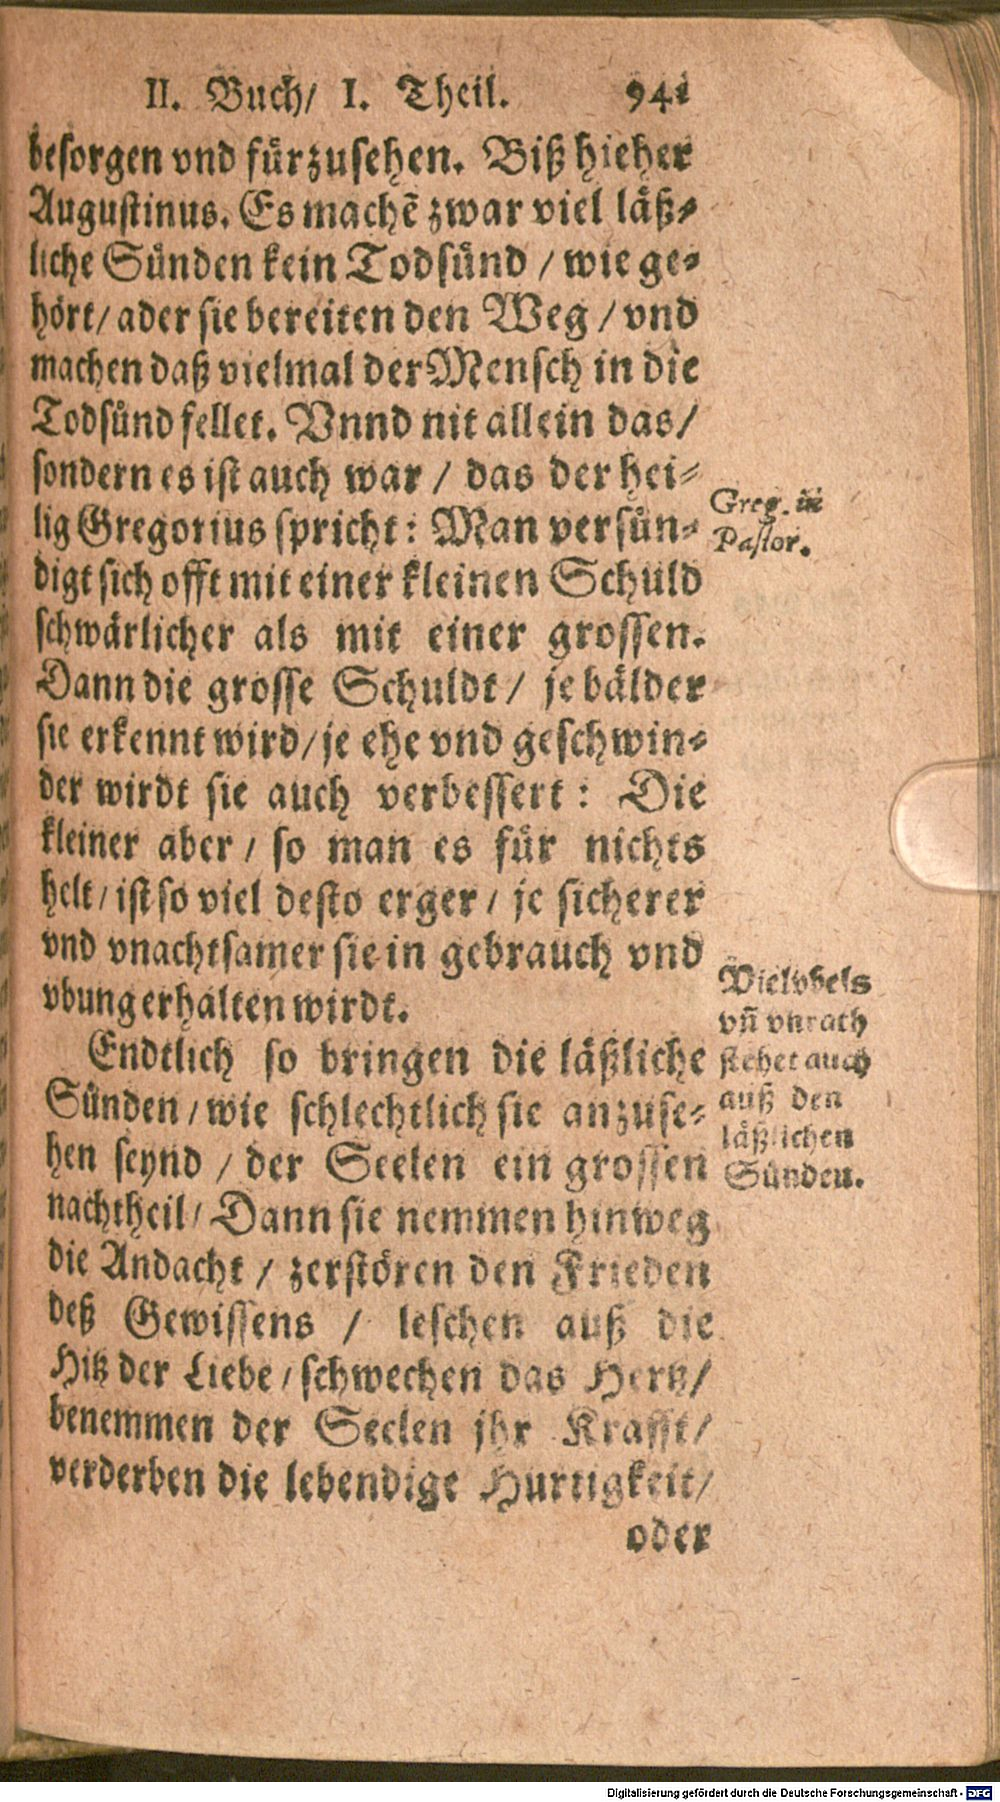 II. Buch/ I. Theil. 941
besorgen vnd fürzusehen. Biß hieher
Augustinus. Es machē zwar viel läß-
liche Sünden kein Todsünd / wie ge-
hört/ ader sie bereiten den Weg / vnd
machen daß vielmal der Mensch in die
Todsünd fellet. Vnnd nit allein das/
sondern es ist auch war / das der hei-
lig Gregorius spricht: Man versün-
digt sich offt mit einer kleinen Schuld
schwärlicher als mit einer grossen.
Dann die grosse Schuldt / je bälder
sie erkennt wird/ je ehe vnd geschwin-
der wirdt sie auch verbessert: Die
kleiner aber / so man es für nichts
helt / ist so viel desto erger / je sicherer
vnd vnachtsamer sie in gebrauch vnd
vbung erhalten wirdt.
Endtlich so bringen die läßliche
Sünden / wie schlechtlich sie anzuse-
hen seynd / der Seelen ein grossen
nachtheil / Dann sie nemmen hinweg
die Andacht / zerstören den Frieden
deß Gewissens / leschen auß die
Hitz der Liebe / schwechen das Hertz/
benemmen der Seelen jhr Krafft/
verderben die lebendige Hurtigkeit/
oder
Greg. in
Pastor.
Viel vbels
vñ vnrath
stehet auch
auß den
läßlichen
Sünden.
Digitalisierung gefördert durch die Deutsche Forschungsgemeinschaft - DFG